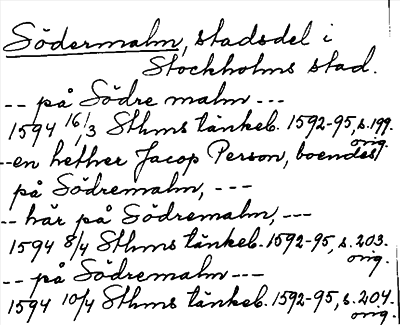 Södermalm, stadsdel i
Stockholms stad.
-- på Södre malm ---
1594 16/3 Sthms tänkeb. 1592-95, s. 199.
orig.
--en hether Jacop Person, boendes
på Södremalm, ---
-- här på Södremalm, ---
1594 8/4 Sthms tänkeb. 1592-95, s. 203.
orig.
-- på Södremalm ---
1594 10/4 Sthms tänkeb. 1592-95, s. 204.
orig.